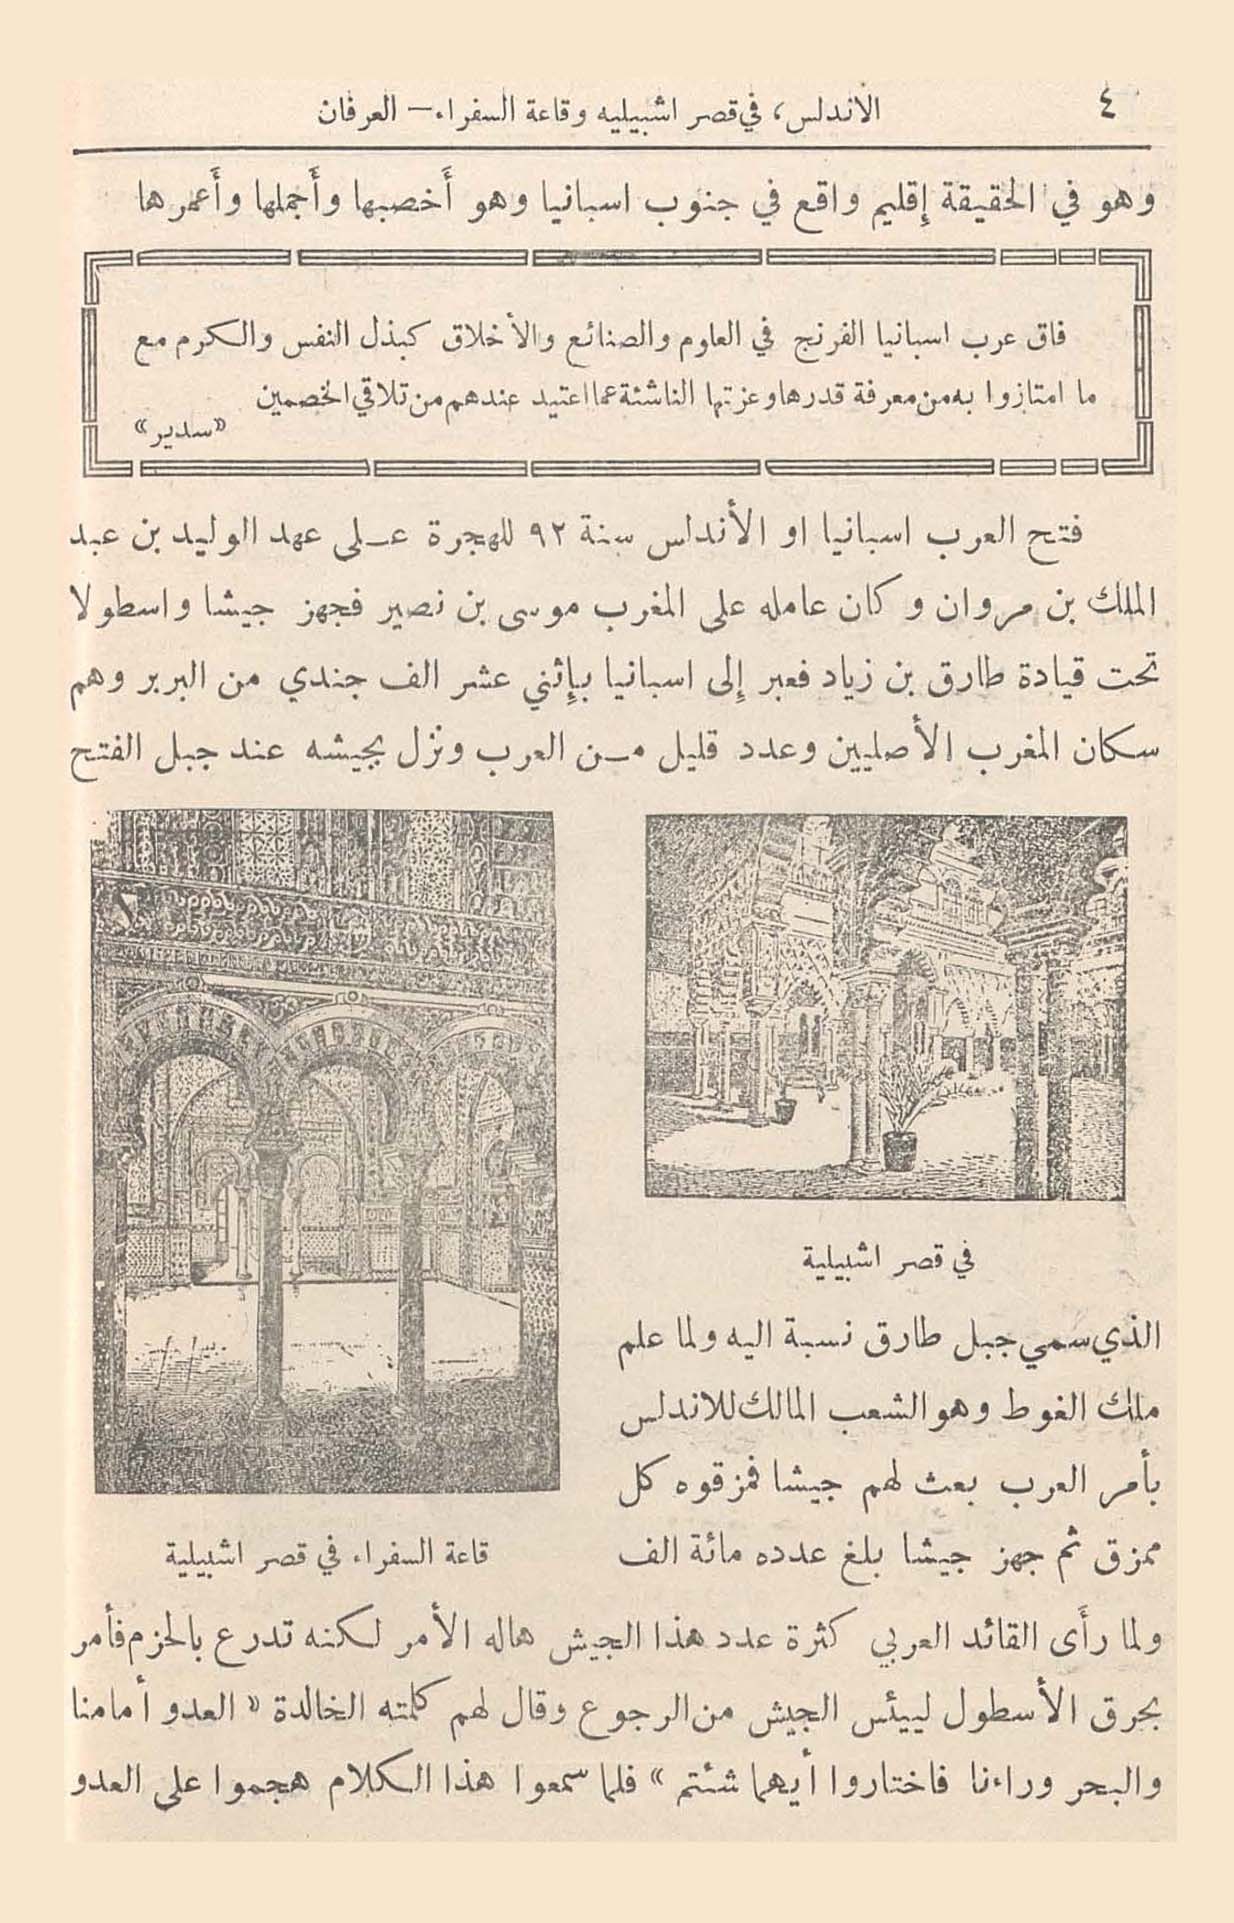 ٤
الاندلس، في قصر اشبيليه وقاعة السفراء — العرفان
وهو في الحقيقة إقليم واقع في جنوب اسبانيا وهو أخصبها وأجملها وأعمرها
فاق عرب اسبانيا الفرنج في العلوم والصنائع والأخلاق كبذل النفس والكرم مع
ما امتازوا به من معرفة قدرها وعزتها الناشئة عما اعتيد عندهم من تلاقي الخصمين
«سدير»
فتح العرب اسبانيا او الأندلس سنة ٩٢ للهجرة على عهد الوليد بن عبد
الملك بن مروان وكان عامله على المغرب موسى بن نصير فجهز جيشا واسطولا
تحت قيادة طارق بن زياد فعبر إلى اسبانيا بإثني عشر الف جندي من البربر وهم
سكان المغرب الأصليين وعدد قليل من العرب ونزل بجيشه عند جبل الفتح
في قصر اشبيلية
الذي سمي جبل طارق نسبة اليه ولما علم
ملك الغوط وهو الشعب المالك للاندلس
بأمر العرب بعث لهم جيشا فمزقوه كل
ممزق ثم جهز جيشا بلغ عدده مائة الف
قاعة السفراء في قصر اشبيلية
ولما رأى القائد العربي كثرة عدد هذا الجيش هاله الأمر لكنه تدرع بالحزم فأمر
بحرق الأسطول لييئس الجيش من الرجوع وقال لهم كلمته الخالدة « العدو أمامنا
والبحر وراءنا فاختاروا أيهما شئتم » فلما سمعوا هذا الكلام هجموا على العدو